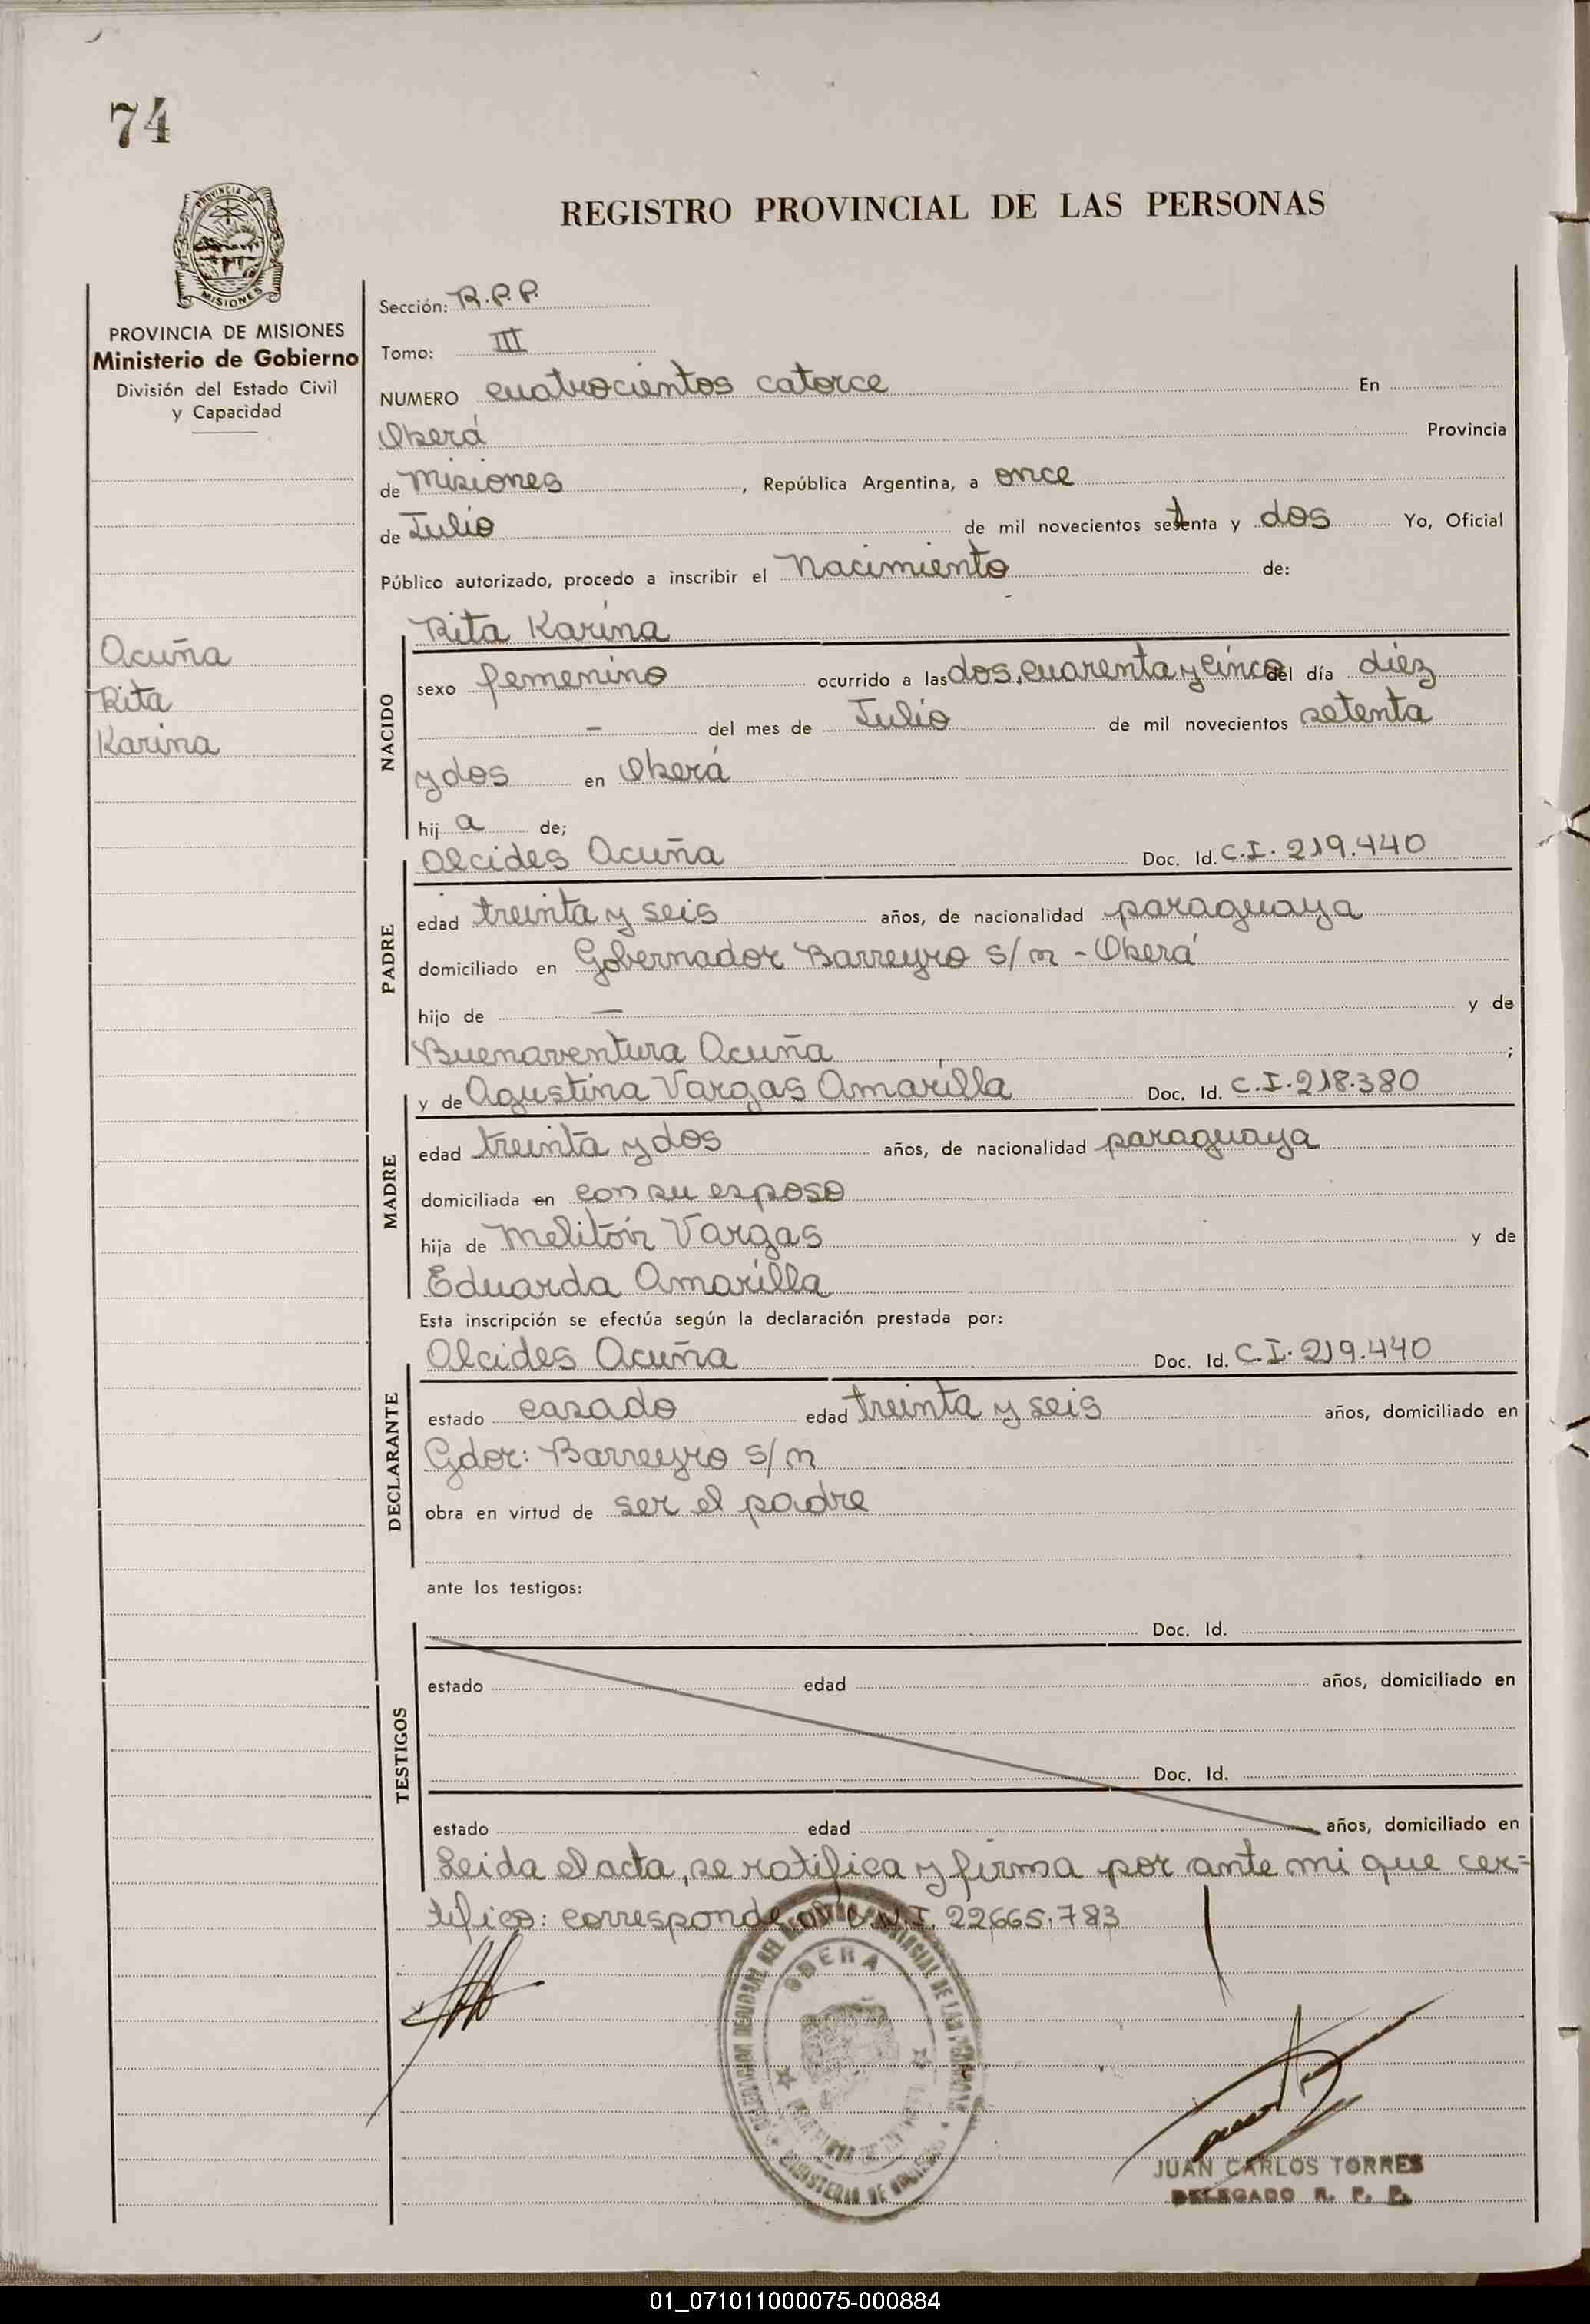 74
PROVINCIA DE
MISIONES
REGISTRO PROVINCIAL DE LAS PERSONAS
PROVINCIA DE MISIONES
Ministerio de Gobierno
División del Estado Civil
y Capacidad
Acuña
Rita
Karina
Sección: R.P.P.
Tomo: III
NUMERO cuatrocientos catorce En
Oberá Provincia
de Misiones, República Argentina, a once
de Julio de mil novecientos setenta y dos Yo, Oficial
Público autorizado, procedo a inscribir el Nacimiento de:
NACIDO
Rita Karina
sexo femenino ocurrido a las dos, cuarenta y cinco del día diez
— del mes de Julio de mil novecientos setenta
y dos en Oberá
hij a de;
PADRE
Alcides Acuña Doc. Id. C.I. 219.440
edad treinta y seis años, de nacionalidad paraguaya
domiciliado en Gobernador Barreyro s/n - Oberá
hijo de — y de
Buenaventura Acuña ;
MADRE
y de Agustina Vargas Amarilla Doc. Id. C.I. 218.380
edad treinta y dos años, de nacionalidad paraguaya
domiciliada en con su esposo
hija de Melitón Vargas y de
Eduarda Amarilla
Esta inscripción se efectúa según la declaración prestada por:
DECLARANTE
Alcides Acuña Doc. Id. C.I. 219.440
estado casado edad treinta y seis años, domiciliado en
Gdor: Barreyro s/n
obra en virtud de ser el padre
ante los testigos:
TESTIGOS
Doc. Id.
estado edad años, domiciliado en
Doc. Id.
estado edad años, domiciliado en
Leida el acta, se ratifica y firma por ante mi que cer=
tifico: corresponde al D.N.I. 22665.783
OBERA
DELEGACION REGIONAL DEL REGISTRO PROVINCIAL DE LAS PERSONAS
MINISTERIO DE GOBIERNO
JUAN CARLOS TORRES
DELEGADO R. P. P.
01_071011000075-000884